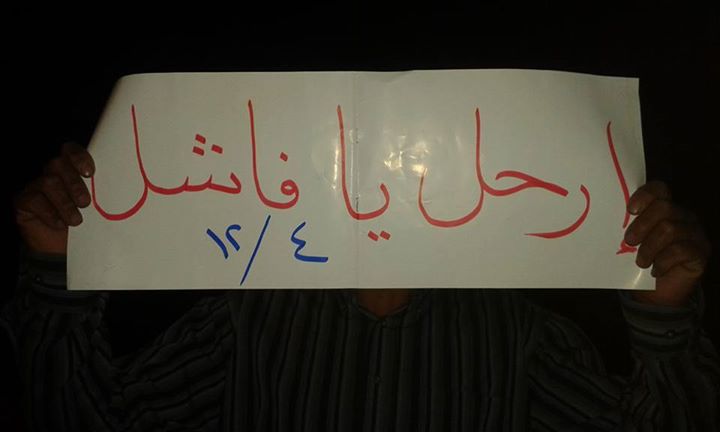 إرحل يا فاشل
١٢/٤